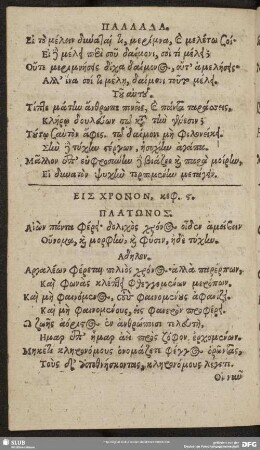 ΠΑΛΛΑΔΑ.
Εἰ τὸ μέλον δύναταί σοι, μερίμνα, ἐ μελέτω σοί·
Εἰ ἢ μέλῃ πθεὶ σοῦ δαίμονι, σοὶ τί μέλῃ;
Οὔτε μεριμνήσεις δίχα δαίμονος, οὔτ' ἀμελήσεις·
Ἀλλ' ἵνα σοί τι μέλῃ, δαίμονι τοῦτο μέλῃ.
Τοῦ αὐτοῦ.
Τίπτε μάτην ἄνθρωπε πονεῖς, καὶ πάντα ταράσσεις,
Κλήρῳ δουλεύων τῷ κατὰ τὴν γένεσιν;
Τούτῳ σαυτὸν ἄφες. τῷ δαίμονι μὴ φιλονείκει.
Σὴν δὲ τύχην στέργων, ἡσυχίαν ἀγάπα.
Μᾶλλον ἐπ' εὐφροσύνην δὲ βιάζεο καὶ παρὰ μοίρην,
Εἰ δυνατὸν ψυχὴν τερπομένην μετάγειν.
ΕΙΣ ΧΡΟΝΟΝ, κεφ. ς.
ΠΛΑΤΩΝΟΣ.
Αἰὼν πάντα φέρει· δολιχὸς χρόνος οἶδεν ἀμείβειν
Οὔνομα, καὶ μορφὴν, καὶ φύσιν, ἠδὲ τύχην.
Ἄδηλον.
Ἀργαλέων φέρεται πολιὸς χρόνος· ἀλλὰ παρέρπων,
Καὶ φωνὰς κλέπτει φθεγγομένων μερόπων.
Καὶ μὴ φαινόμενος, τοὺς φαινομένους ἀφανίζει.
Καὶ μὴ φαινομένους, εἰς φανερὸν προφέρει.
Ὦ ζωῆς ἀόριστος ἐν ἀνθρώποισι τελευτὴ,
Ἦμαρ ἐπ' ἦμαρ ἀεὶ πρὸς ζόφον ἐρχομένων.
Μηκέτι κληρονόμους ὀνομάζετε φέγγος ὁρῶντας,
Τοὺς δ' ἀποθνήσκοντας, κληρονόμους λέγετε.
SLUB
DFG